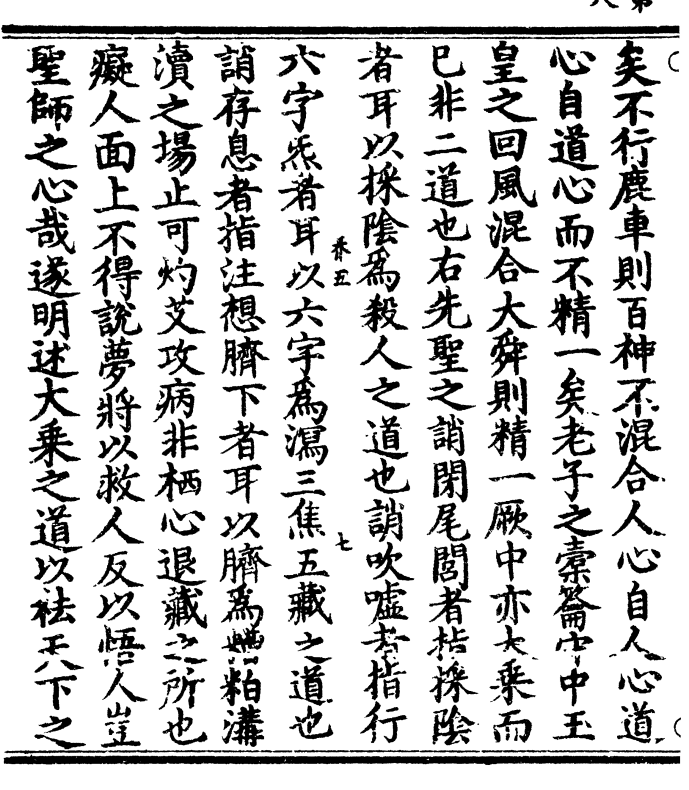 矣不行鹿車則百神不混合人心自人心道
心自道心而不精一矣老子之橐籥守中玉
皇之回風混合大舜則精一厥中亦大乘而
已非二道也右先聖之誚閉尾閭者指採陰
者耳以採陰為殺人之道也誚吹噓者指行
六字炁者耳以六字為瀉三焦五藏之道也
誚存息者指注想臍下者耳以臍為糟粕溝
瀆之場止可灼艾攻病非栖心退藏之所也
癡人面上不得說夢將以救人反以悟人豈
聖師之心哉遂明述大乘之道以袪天下之